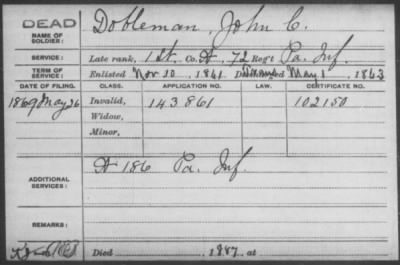 DEAD
NAME OF SOLDIER: Dobleman, John C.
SERVICE: Late rank, 1 Lt. Co. A, 72 Reg't Pa. Inf.
TERM OF SERVICE: Enlisted Nov 10 1861 May 1 1863
DATE OF FILING. CLASS. APPLICATION NO. LAW. CERTIFICATE NO.
1869 May 26 Invalid, 143861 102150
Widow,
Minor,
ADDITIONAL SERVICES: A 186 Pa. Inf.
REMARKS:
Died 1887, at